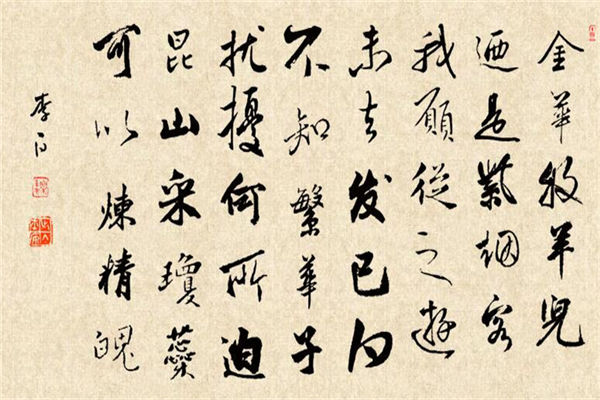 金華牧羊兒
迺是紫烟客
我願從之遊
未去发已白
不知繁華子
扰擾何所迫
昆山采瓊蕊
可以煉精魄
李白